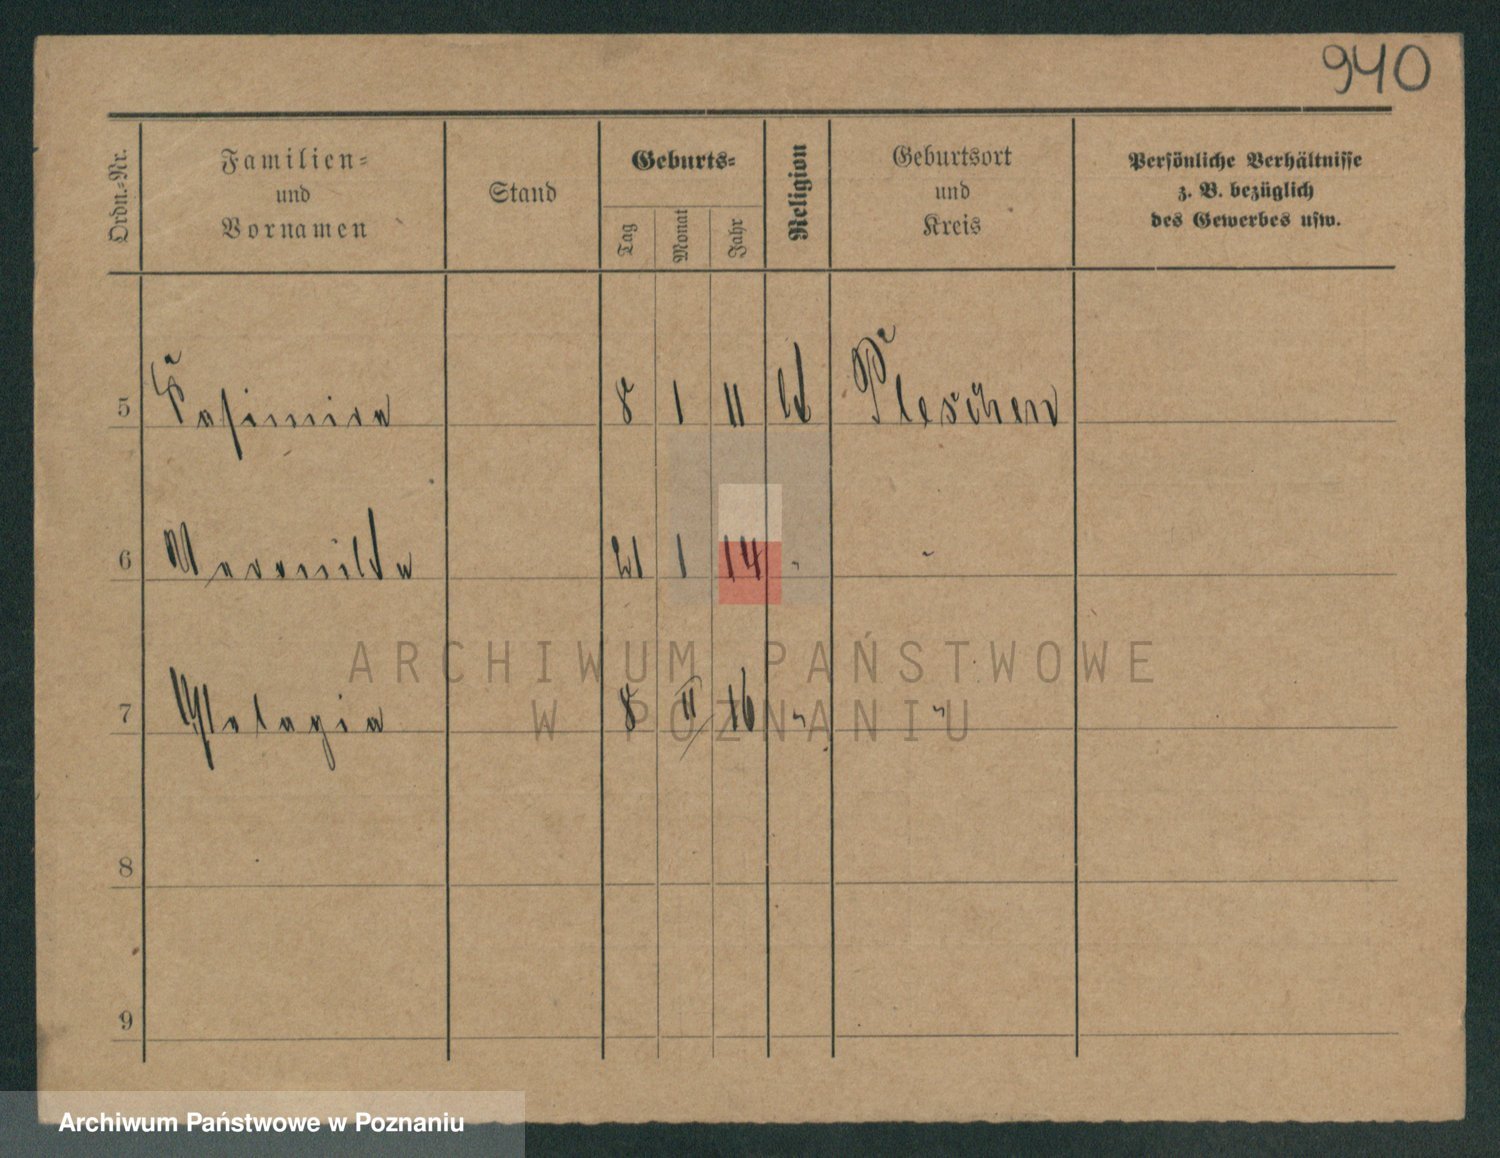 940
Ordn.-Nr.
Familien-
und
Vornamen
Stand
Geburts-
Tag
Monat
Jahr
Religion
Geburtsort
und
Kreis
Persönliche Verhältnisse
z. B. bezüglich
des Gewerbes usw.
5 Kasimira 8 1 11 Pleschen
6 21 1 14 " "
7 Pelagia 8 II 16 " "
8
9
ARCHIWUM PAŃSTWOWE
W POZNANIU
Archiwum Państwowe w Poznaniu